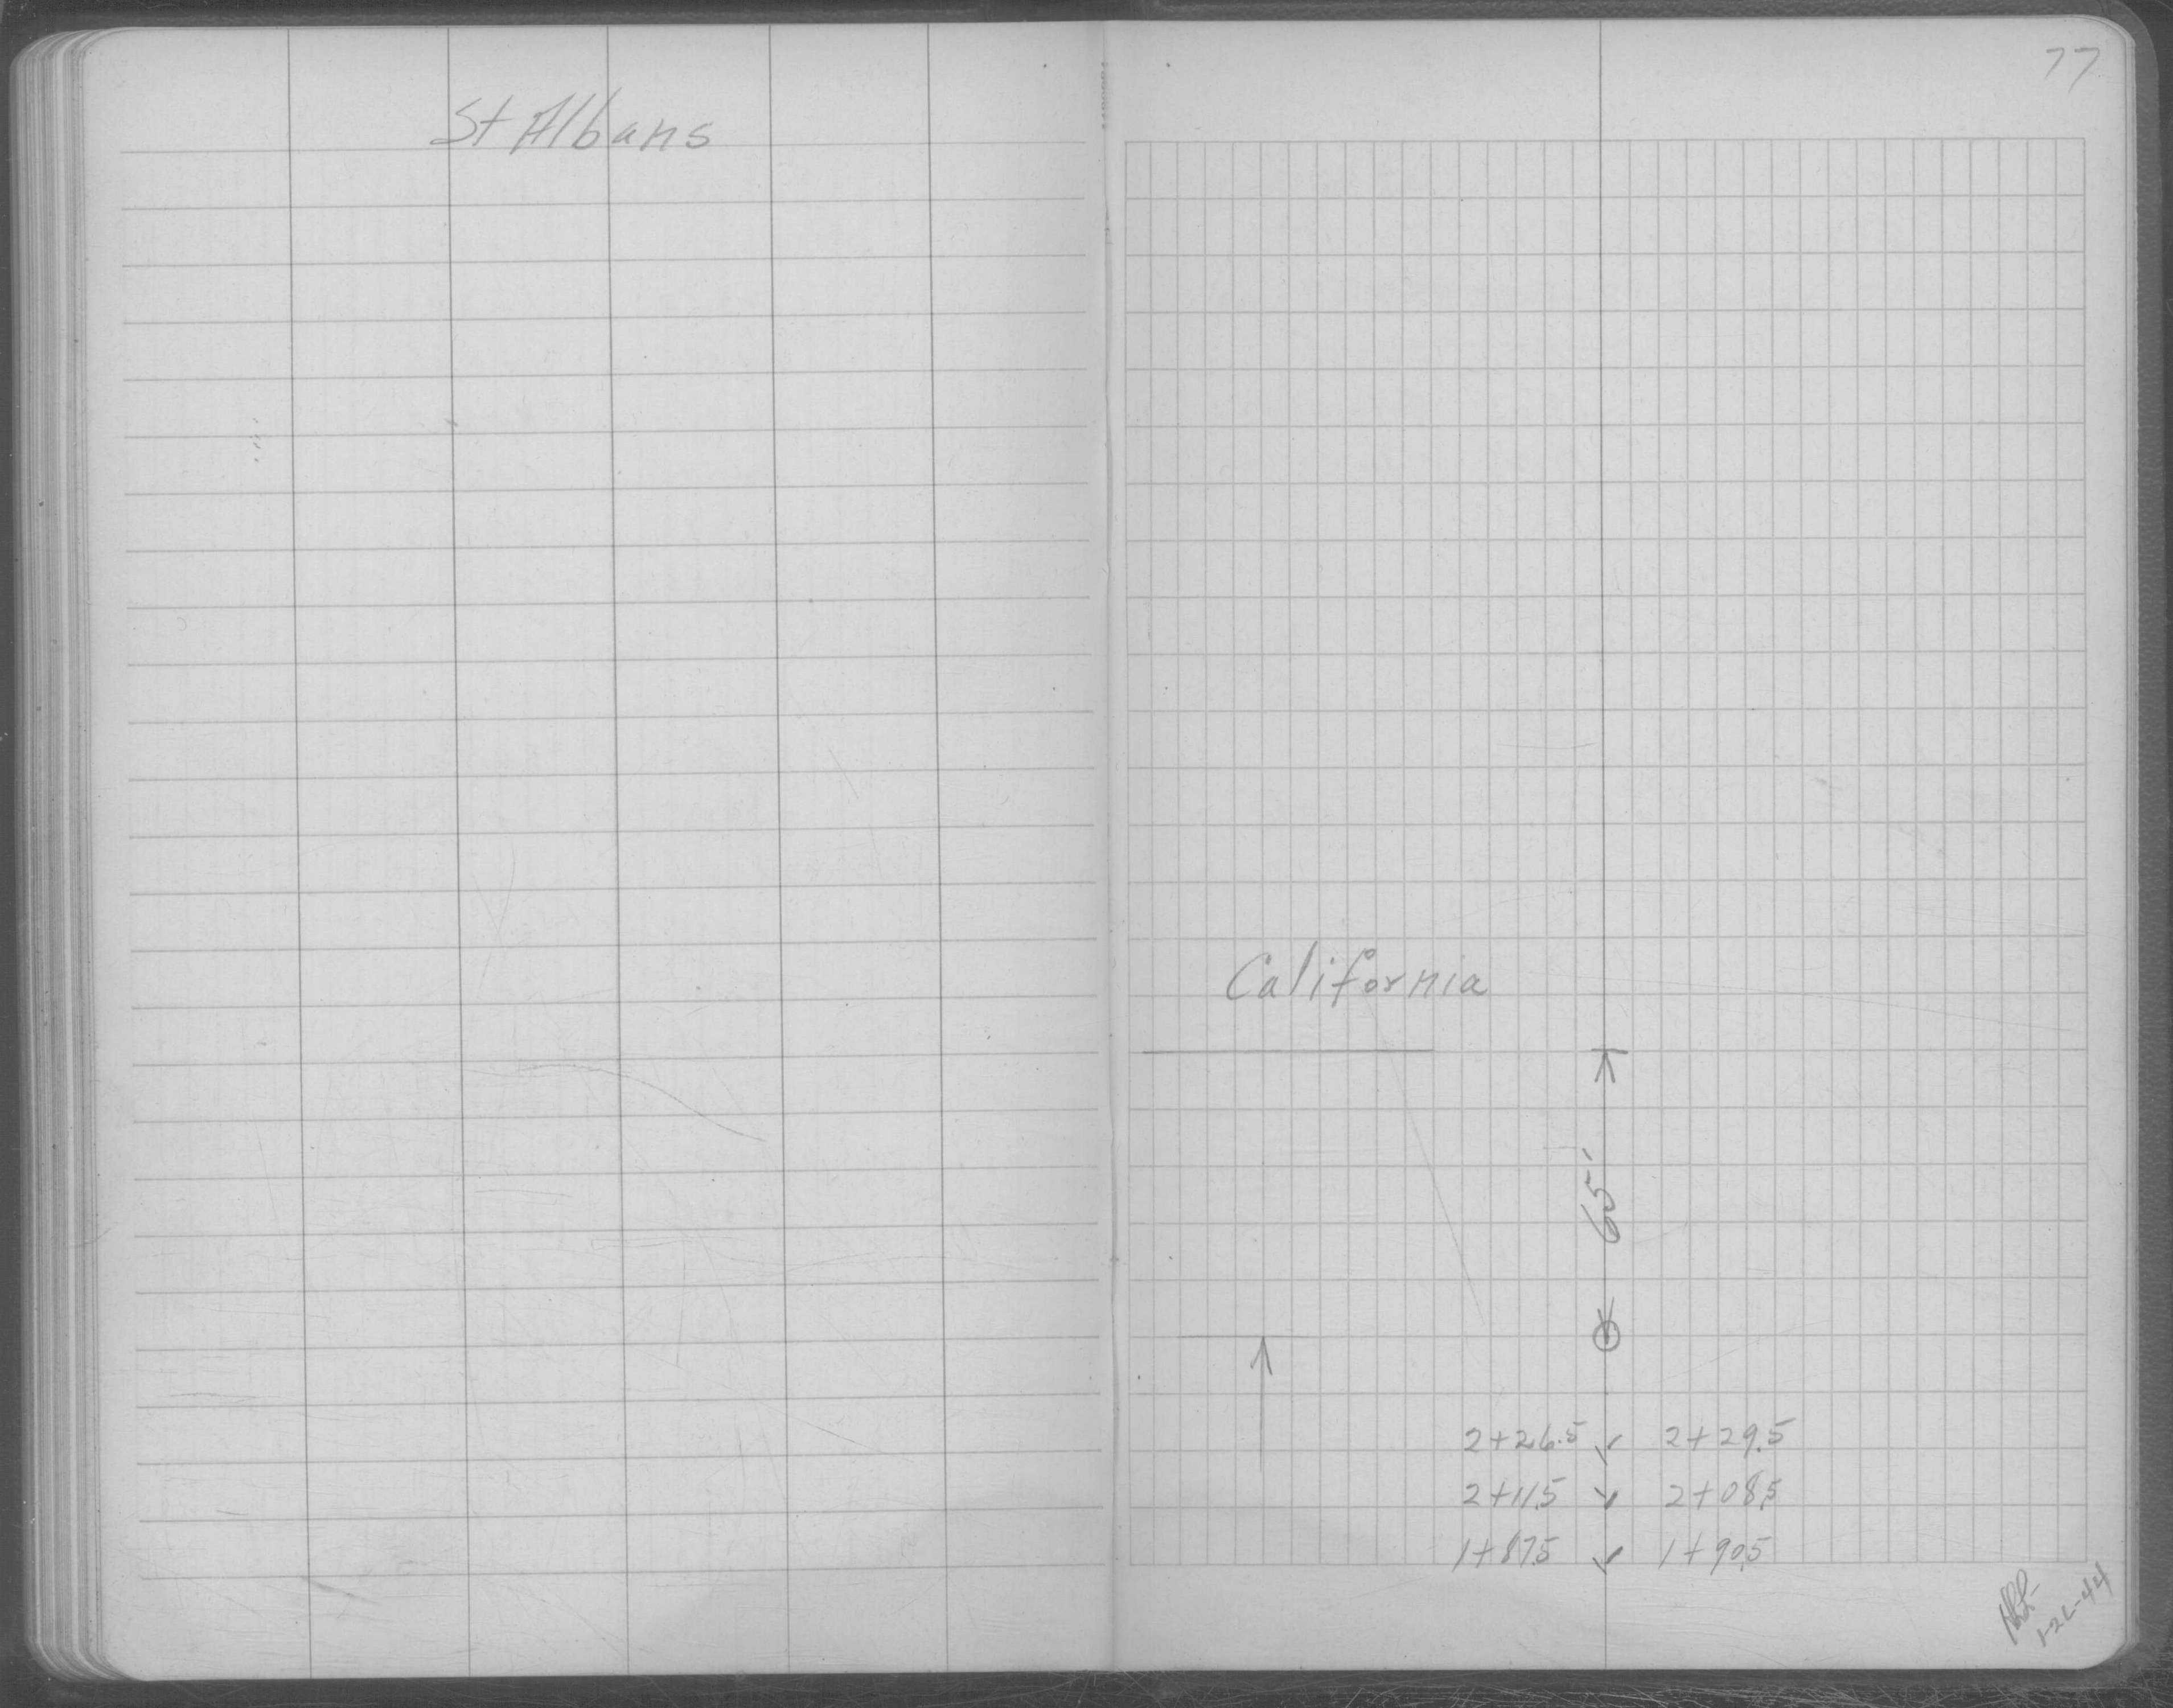 St Albans
77
California
65'
2+26.5 2+29.5
2+11.5 2+08.5
1+87.5 1+90.5